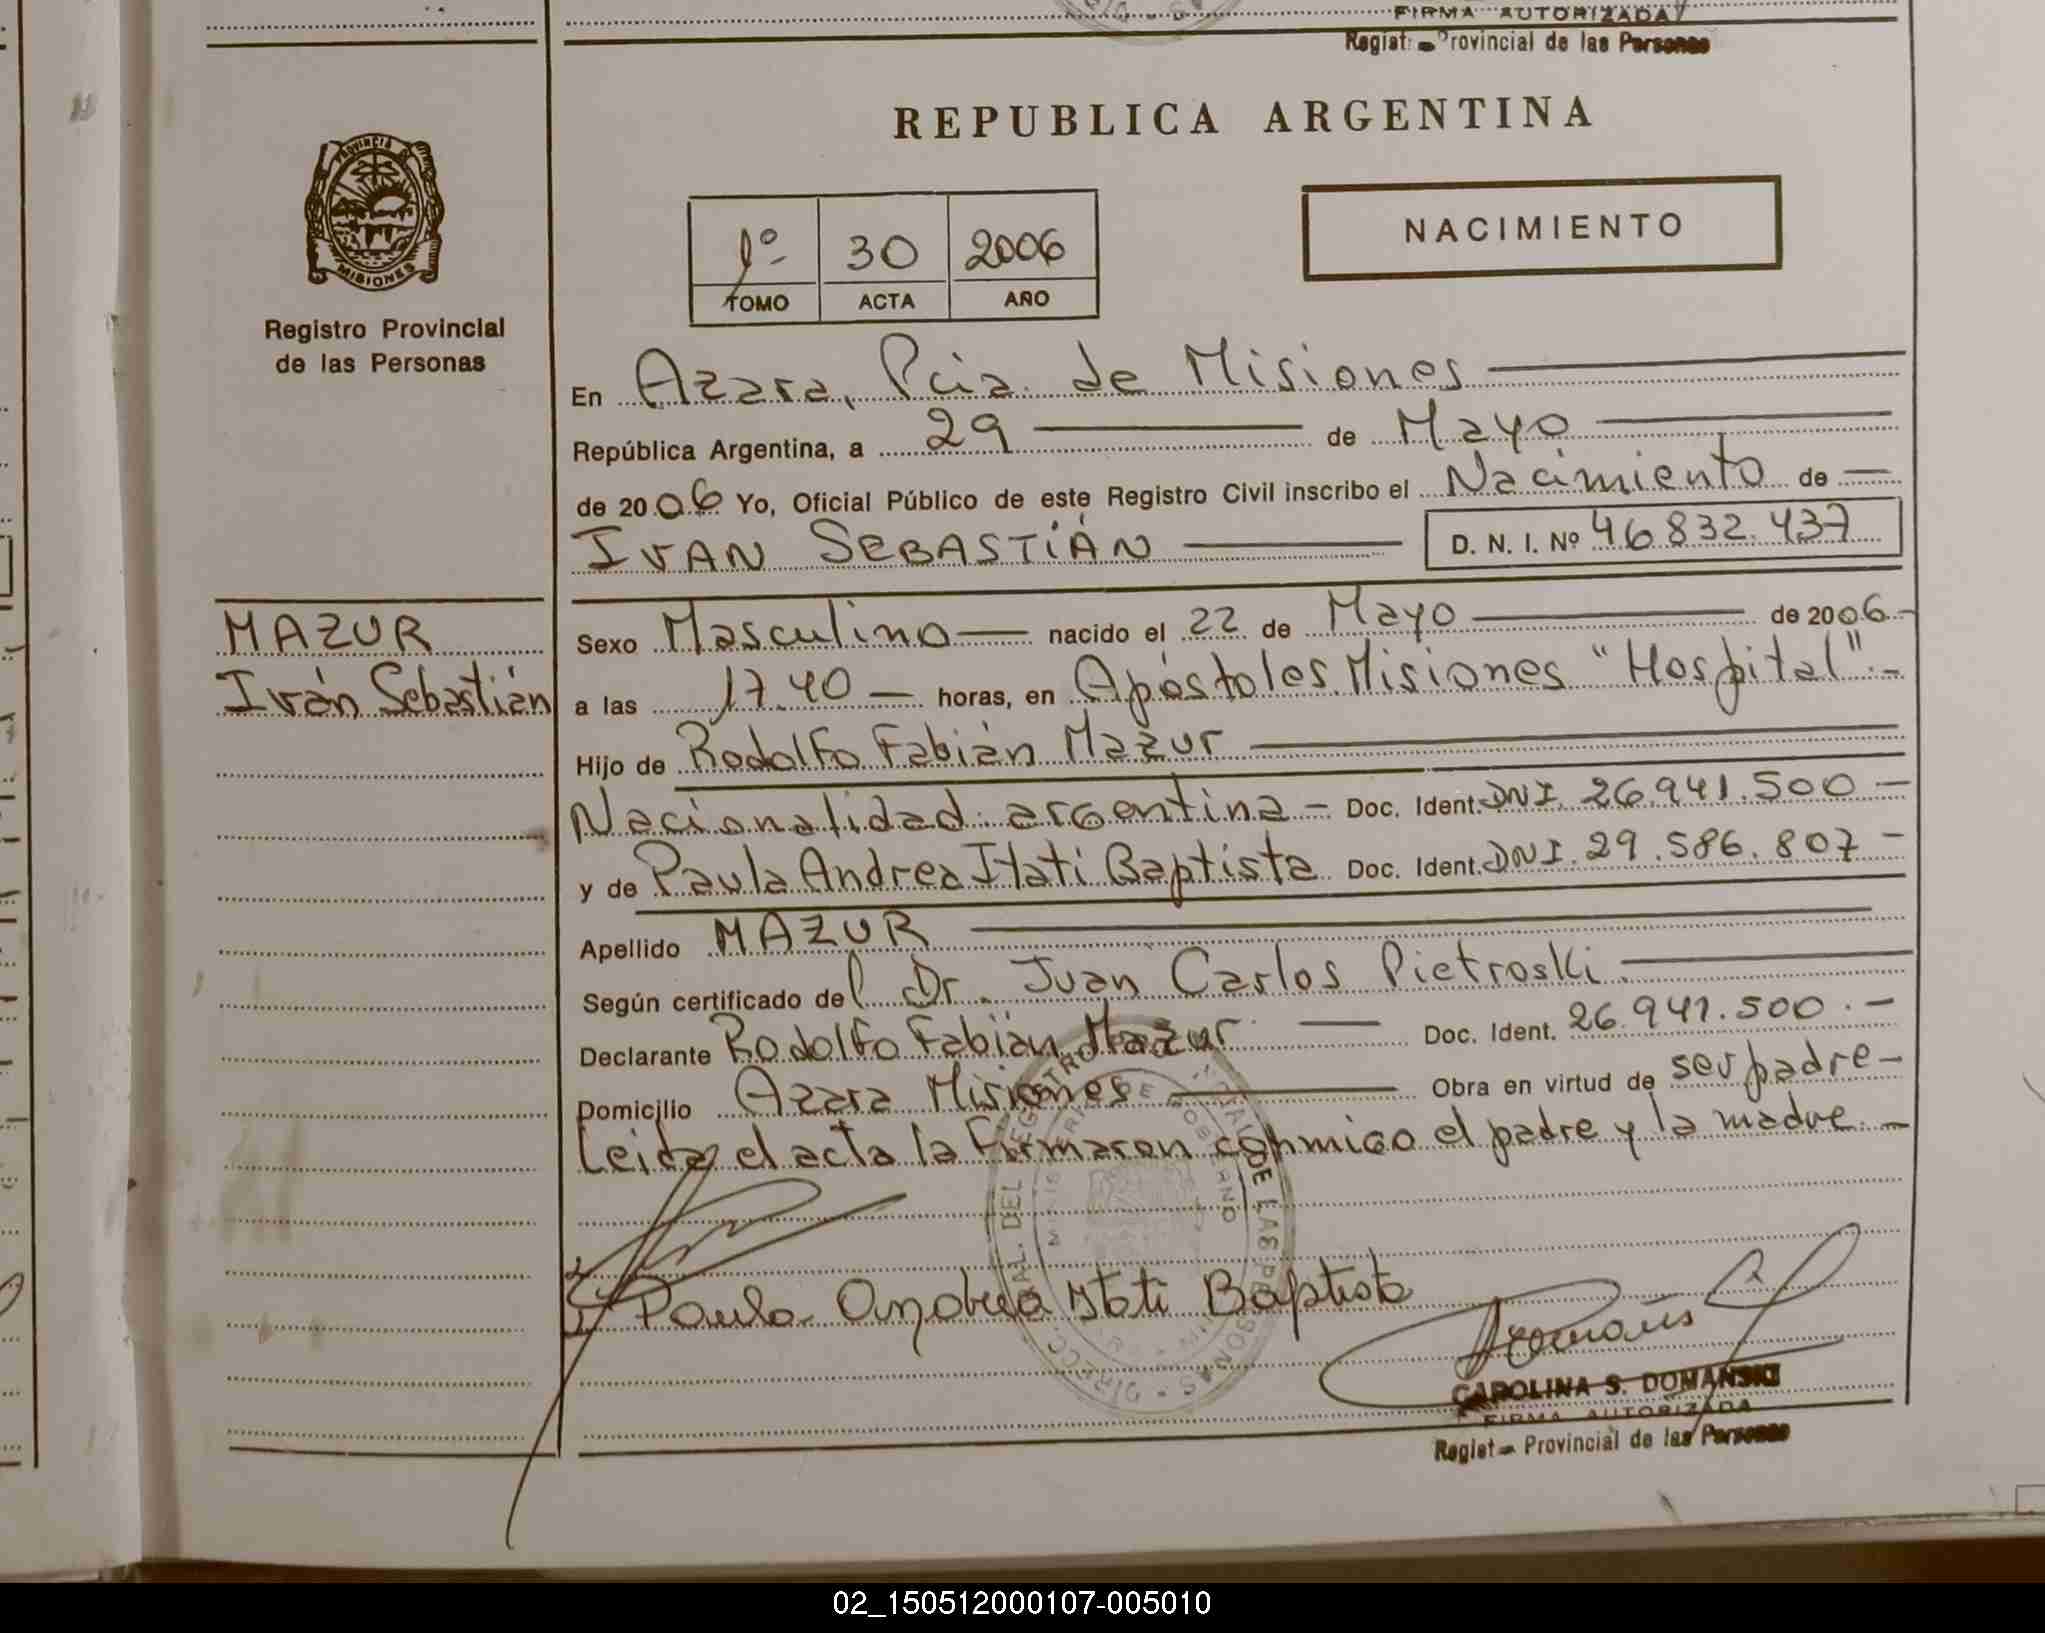 FIRMA AUTORIZADA
Regist. Provincial de las Personas
REPUBLICA ARGENTINA
PROVINCIA DE
MISIONES
Registro Provincial
de las Personas
1º 30 2006
TOMO ACTA AÑO
NACIMIENTO
En Azara, Pcia. de Misiones
República Argentina, a 29 de Mayo
de 2006 Yo, Oficial Público de este Registro Civil inscribo el Nacimiento de
IVAN SEBASTIÁN D. N. I. Nº 46.832.437
MAZUR
Iván Sebastián
Sexo Masculino nacido el 22 de Mayo de 2006.-
a las 17.40 horas, en Apóstoles Misiones "Hospital".-
Hijo de Rodolfo Fabián Mazur
Nacionalidad argentina - Doc. Ident. DNI. 26.941.500 -
y de Paula Andrea Itati Baptista Doc. Ident. DNI. 29.586.807 -
Apellido MAZUR
Según certificado del Dr. Juan Carlos Pietroski
Declarante Rodolfo Fabián Mazur Doc. Ident. 26.941.500.-
Domicilio Azara Misiones Obra en virtud de ser padre-
Leida el acta la firmaron conmigo el padre y la madre.-
DIRECC. GRAL. DEL REGISTRO PROVINCIAL DE LAS PERSONAS
MINISTERIO DE GOBIERNO
Paula Andrea Itati Baptista
CAROLINA S. DOMANSKI
FIRMA AUTORIZADA
Regist. Provincial de las Personas
02_150512000107-005010